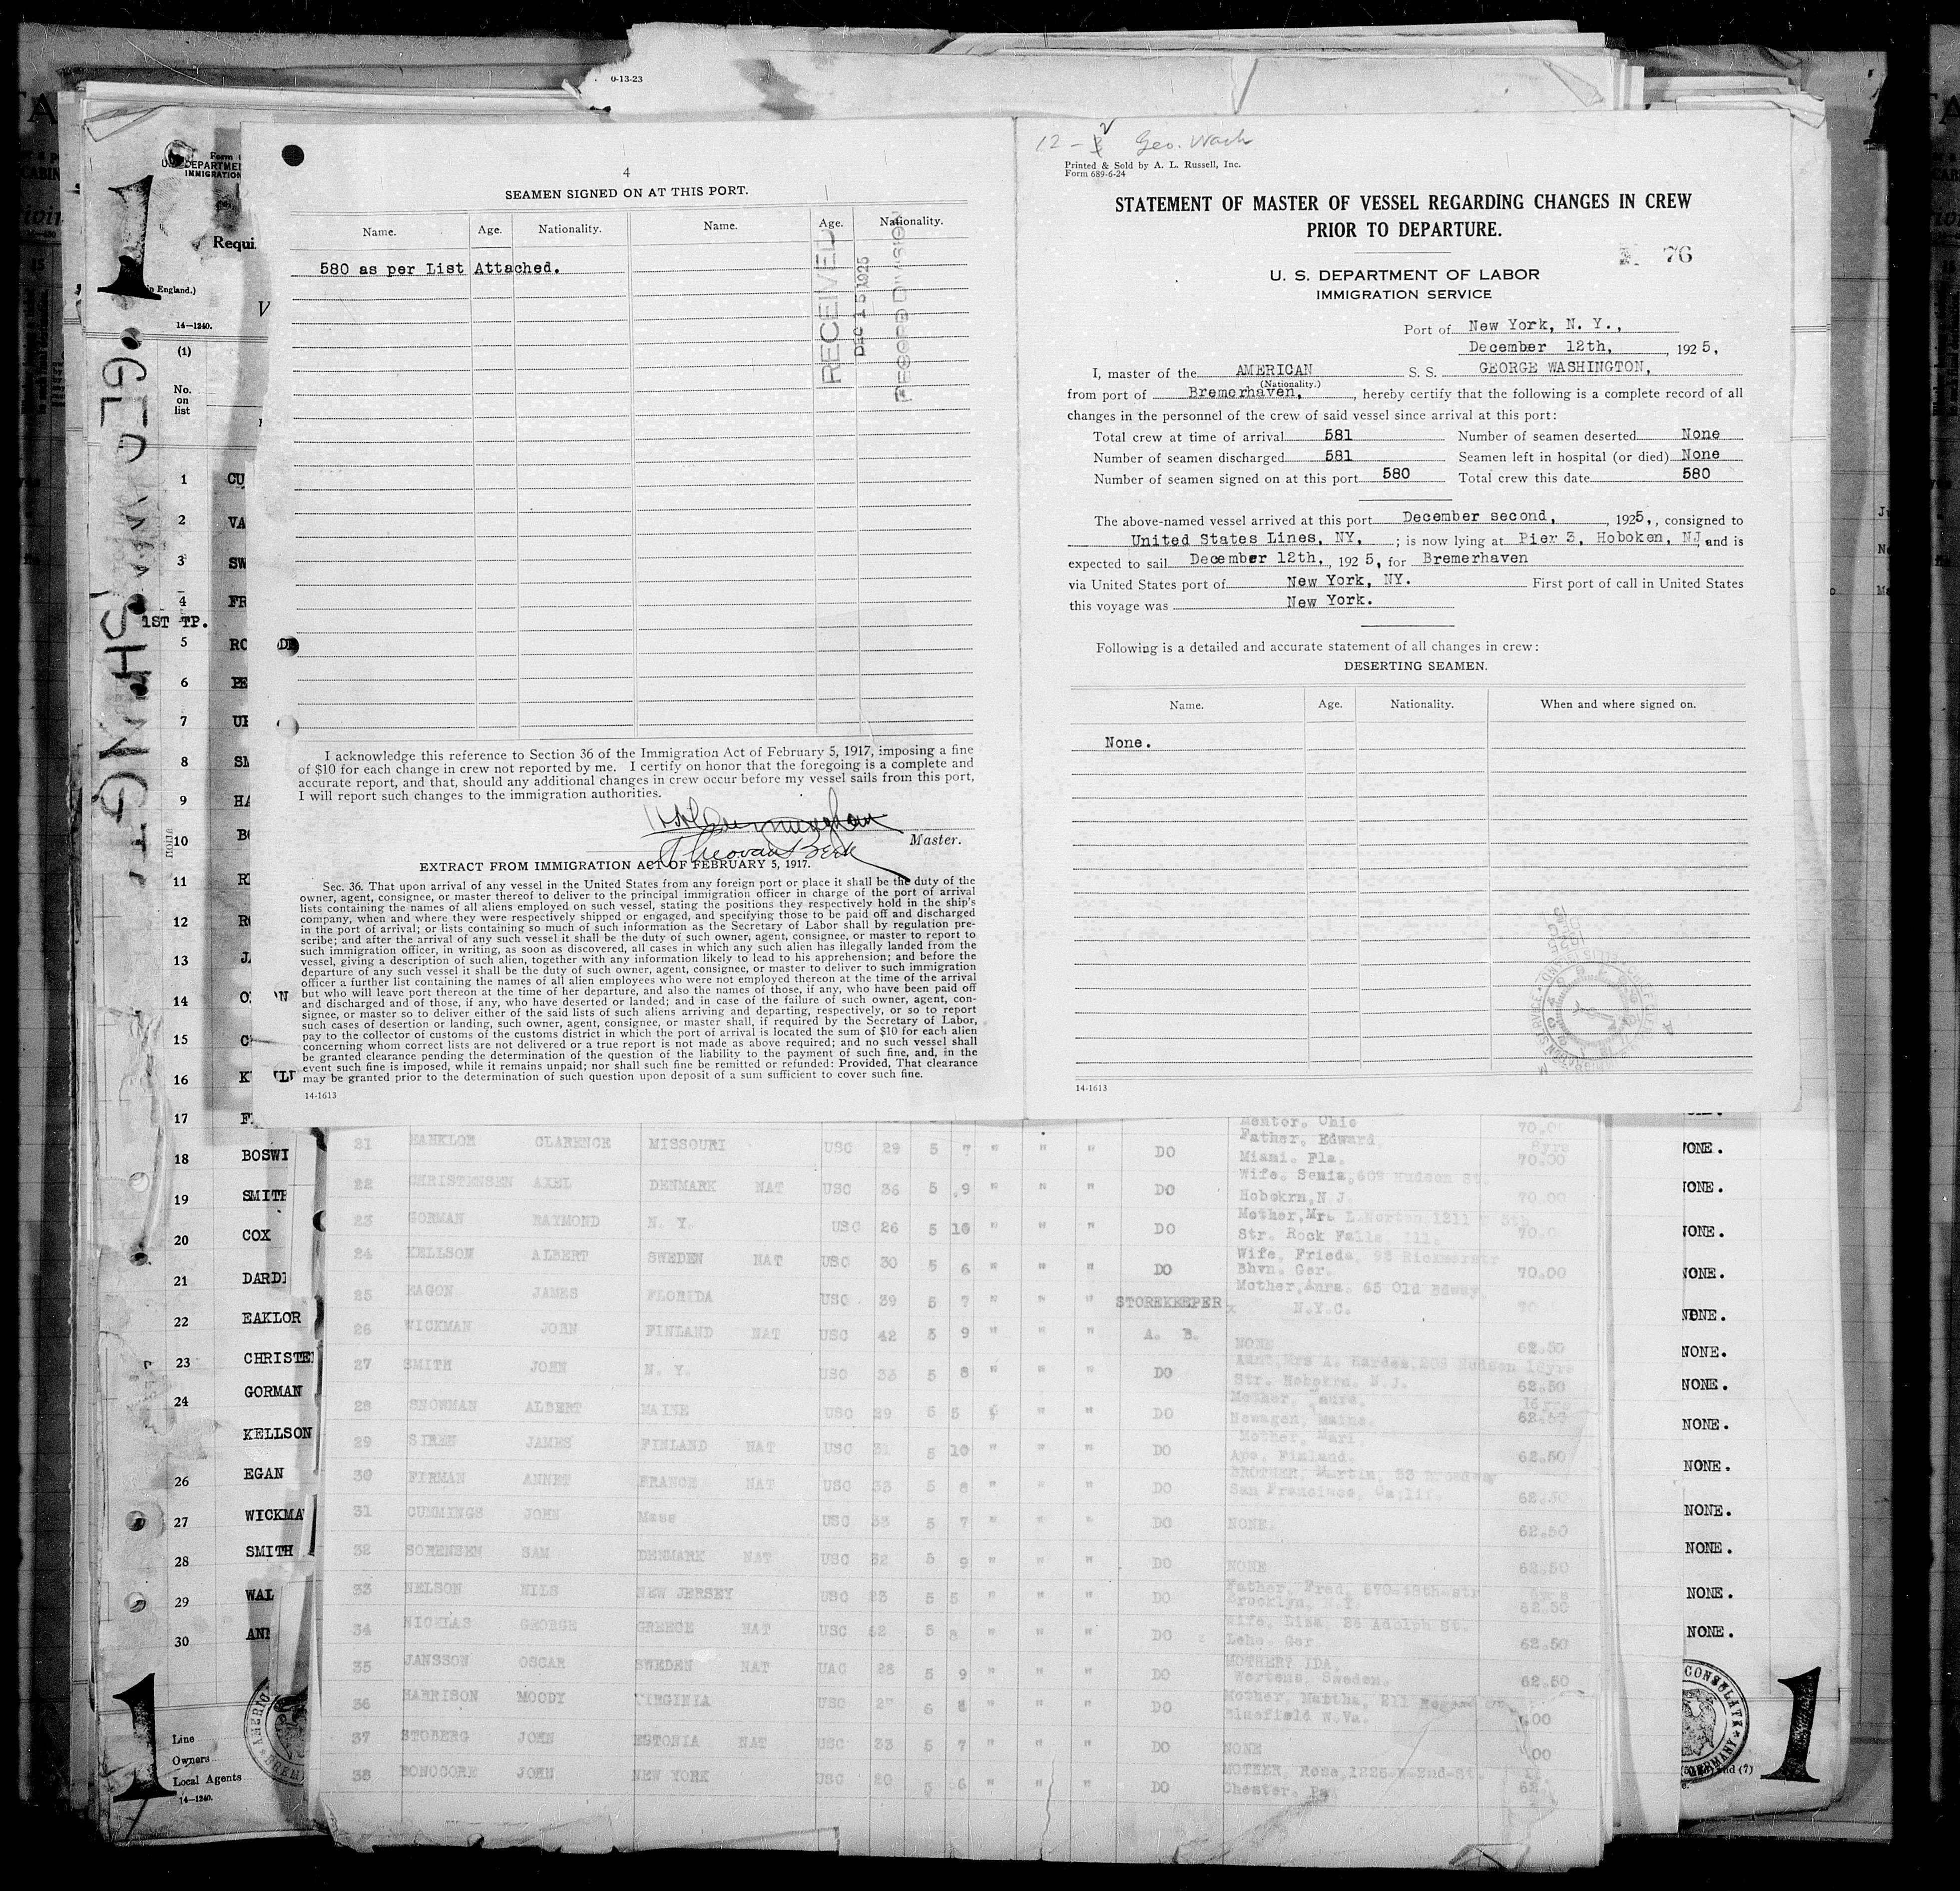 0-13-23
4
SEAMEN SIGNED ON AT THIS PORT.
Name. Age. Nationality. Name. Age. Nationality.
580 as per List Attached.
RECEIVED
DEC 15 1925
RECORD DIVISION
I acknowledge this reference to Section 36 of the Immigration Act of February 5, 1917, imposing a fine
of $10 for each change in crew not reported by me. I certify on honor that the foregoing is a complete and
accurate report, and that, should any additional changes in crew occur before my vessel sails from this port,
I will report such changes to the immigration authorities.
Master.
EXTRACT FROM IMMIGRATION ACT OF FEBRUARY 5, 1917.
Sec. 36. That upon arrival of any vessel in the United States from any foreign port or place it shall be the duty of the
owner, agent, consignee, or master thereof to deliver to the principal immigration officer in charge of the port of arrival
lists containing the names of all aliens employed on such vessel, stating the positions they respectively hold in the ship's
company, when and where they were respectively shipped or engaged, and specifying those to be paid off and discharged
in the port of arrival; or lists containing so much of such information as the Secretary of Labor shall by regulation pre-
scribe; and after the arrival of any such vessel it shall be the duty of such owner, agent, consignee, or master to report to
such immigration officer, in writing, as soon as discovered, all cases in which any such alien has illegally landed from the
vessel, giving a description of such alien, together with any information likely to lead to his apprehension; and before the
departure of any such vessel it shall be the duty of such owner, agent, consignee, or master to deliver to such immigration
officer a further list containing the names of all alien employees who were not employed thereon at the time of the arrival
but who will leave port thereon at the time of her departure, and also the names of those, if any, who have been paid off
and discharged and of those, if any, who have deserted or landed; and in case of the failure of such owner, agent, con-
signee, or master so to deliver either of the said lists of such aliens arriving and departing, respectively, or so to report
such cases of desertion or landing, such owner, agent, consignee, or master shall, if required by the Secretary of Labor,
pay to the collector of customs of the customs district in which the port of arrival is located the sum of $10 for each alien
concerning whom correct lists are not delivered or a true report is not made as above required; and no such vessel shall
be granted clearance pending the determination of the question of the liability to the payment of such fine, and, in the
event such fine is imposed, while it remains unpaid; nor shall such fine be remitted or refunded: Provided, That clearance
may be granted prior to the determination of such question upon deposit of a sum sufficient to cover such fine.
14-1613
12 - 2 Geo. Wash
Printed & Sold by A. L. Russell, Inc.
Form 689-6-24
STATEMENT OF MASTER OF VESSEL REGARDING CHANGES IN CREW
PRIOR TO DEPARTURE.
76
U. S. DEPARTMENT OF LABOR
IMMIGRATION SERVICE
Port of New York, N. Y.,
December 12th, , 1925,
I, master of the AMERICAN S. S. GEORGE WASHINGTON,
(Nationality.)
from port of Bremerhaven, , hereby certify that the following is a complete record of all
changes in the personnel of the crew of said vessel since arrival at this port:
Total crew at time of arrival 581 Number of seamen deserted None
Number of seamen discharged 581 Seamen left in hospital (or died) None
Number of seamen signed on at this port 580 Total crew this date 580
The above-named vessel arrived at this port December second, , 1925, , consigned to
United States Lines, NY, ; is now lying at Pier 3, Hoboken, NJ and is
expected to sail December 12th, , 1925, for Bremerhaven
via United States port of New York, NY. First port of call in United States
this voyage was New York.
Following is a detailed and accurate statement of all changes in crew:
DESERTING SEAMEN.
Name. Age. Nationality. When and where signed on.
None.
14-1613
GEO WASHINGT
1
Requi
in England.)
14-1240.
(1)
No.
on
list
1 CU
2 VA
3 SW
4 FR
1ST TP.
5 RO
6 PE
7 UR
8 SM
9 HA
10 BO
11
12
13
14
15
16
17
18 BOSWI
19 SMITH
20 COX
21 DARDI
22 EAKLOR
23 CHRISTE
24 GORMAN
KELLSON
26 EGAN
27 WICKMA
28 SMITH
29 WAL
30
Line
Owners
Local Agents
14-1240.
1
Mentor, Ohio 70.00
21 EAKLOR CLARENCE MISSOURI USC 29 5 7 " " " DO Father, Edward, Miami. Fla. 8yrs 70.00
22 CHRISTENSEN AXEL DENMARK NAT USC 36 5 9 " " " DO Wife. Senia, 609 Hudson St. Hobokrn, N.J. 70.00
23 GORMAN RAYMOND N. Y. USC 26 5 10 " " " DO Mother, Mrs L.Norton, 1211 Str. Rock Falls, Ill.
24 KELLSON ALBERT SWEDEN NAT USC 30 5 6 " " " DO Wife. Frieda, Bhvn. Ger. 70.00
25 EAGON JAMES FLORIDA USC 39 5 7 " " " STOREKEEPER Mother, Anna. 65 Old Bdway, N.Y.C.
26 WICKMAN JOHN FINLAND NAT USC 42 5 9 " " " A. B. NONE 62.50
27 SMITH JOHN N. Y. USC 33 5 8 " " " DO Aunt, Mrs A. Hardes, Hudson Str. Hobokrn. N.J. 16yrs 62.50
28 SNOWMAN ALBERT MAINE USC 29 5 5 " " " DO Mother, Newagen, Maine. 62.50
29 SIREN JAMES FINLAND NAT USC 31 5 10 " " " DO Mother, Mari, Apo, Finland. 62.50
30 FIRMAN ANNET FRANCE NAT USC 33 5 8 " " " DO BROTHER, Martin, 33 Broadway San Francisco, Calif. 62.50
31 CUMMINGS JOHN Mass USC 33 5 7 " " " DO NONE. 62.50
32 SORENSEN SAM DENMARK NAT USC 32 5 9 " " " DO NONE 62.50
33 NELSON NILS NEW JERSEY USC 23 5 5 " " " DO Father, Fred, 670-48th-str Brooklyn, N.Y. 62.50
34 NICKLAS GEORGE GREECE NAT USC 5 8 " " " DO Wife, Lisa, 26 Adolph St. Lehe. Ger. 62.50
35 JANSSON OSCAR SWEDEN NAT UAC 28 5 9 " " " DO MOTHER? IDA, Sweden. 62.50
36 HARRISON MOODY VIRGINIA USC 5 8 " " " DO Mother, Martha, 211 Bluefield W.Va.
37 STOBERG JOHN ESTONIA NAT USC 33 5 7 " " " DO NONE
38 BONOCORE JOHN NEW YORK USC 20 5 6 " " " DO MOTHER, Rosa, Chester. Pa.
NONE.
NONE.
NONE.
NONE.
NONE.
NONE.
NONE.
NONE.
NONE.
NONE.
NONE.
NONE.
NONE.
CONSULATE
1